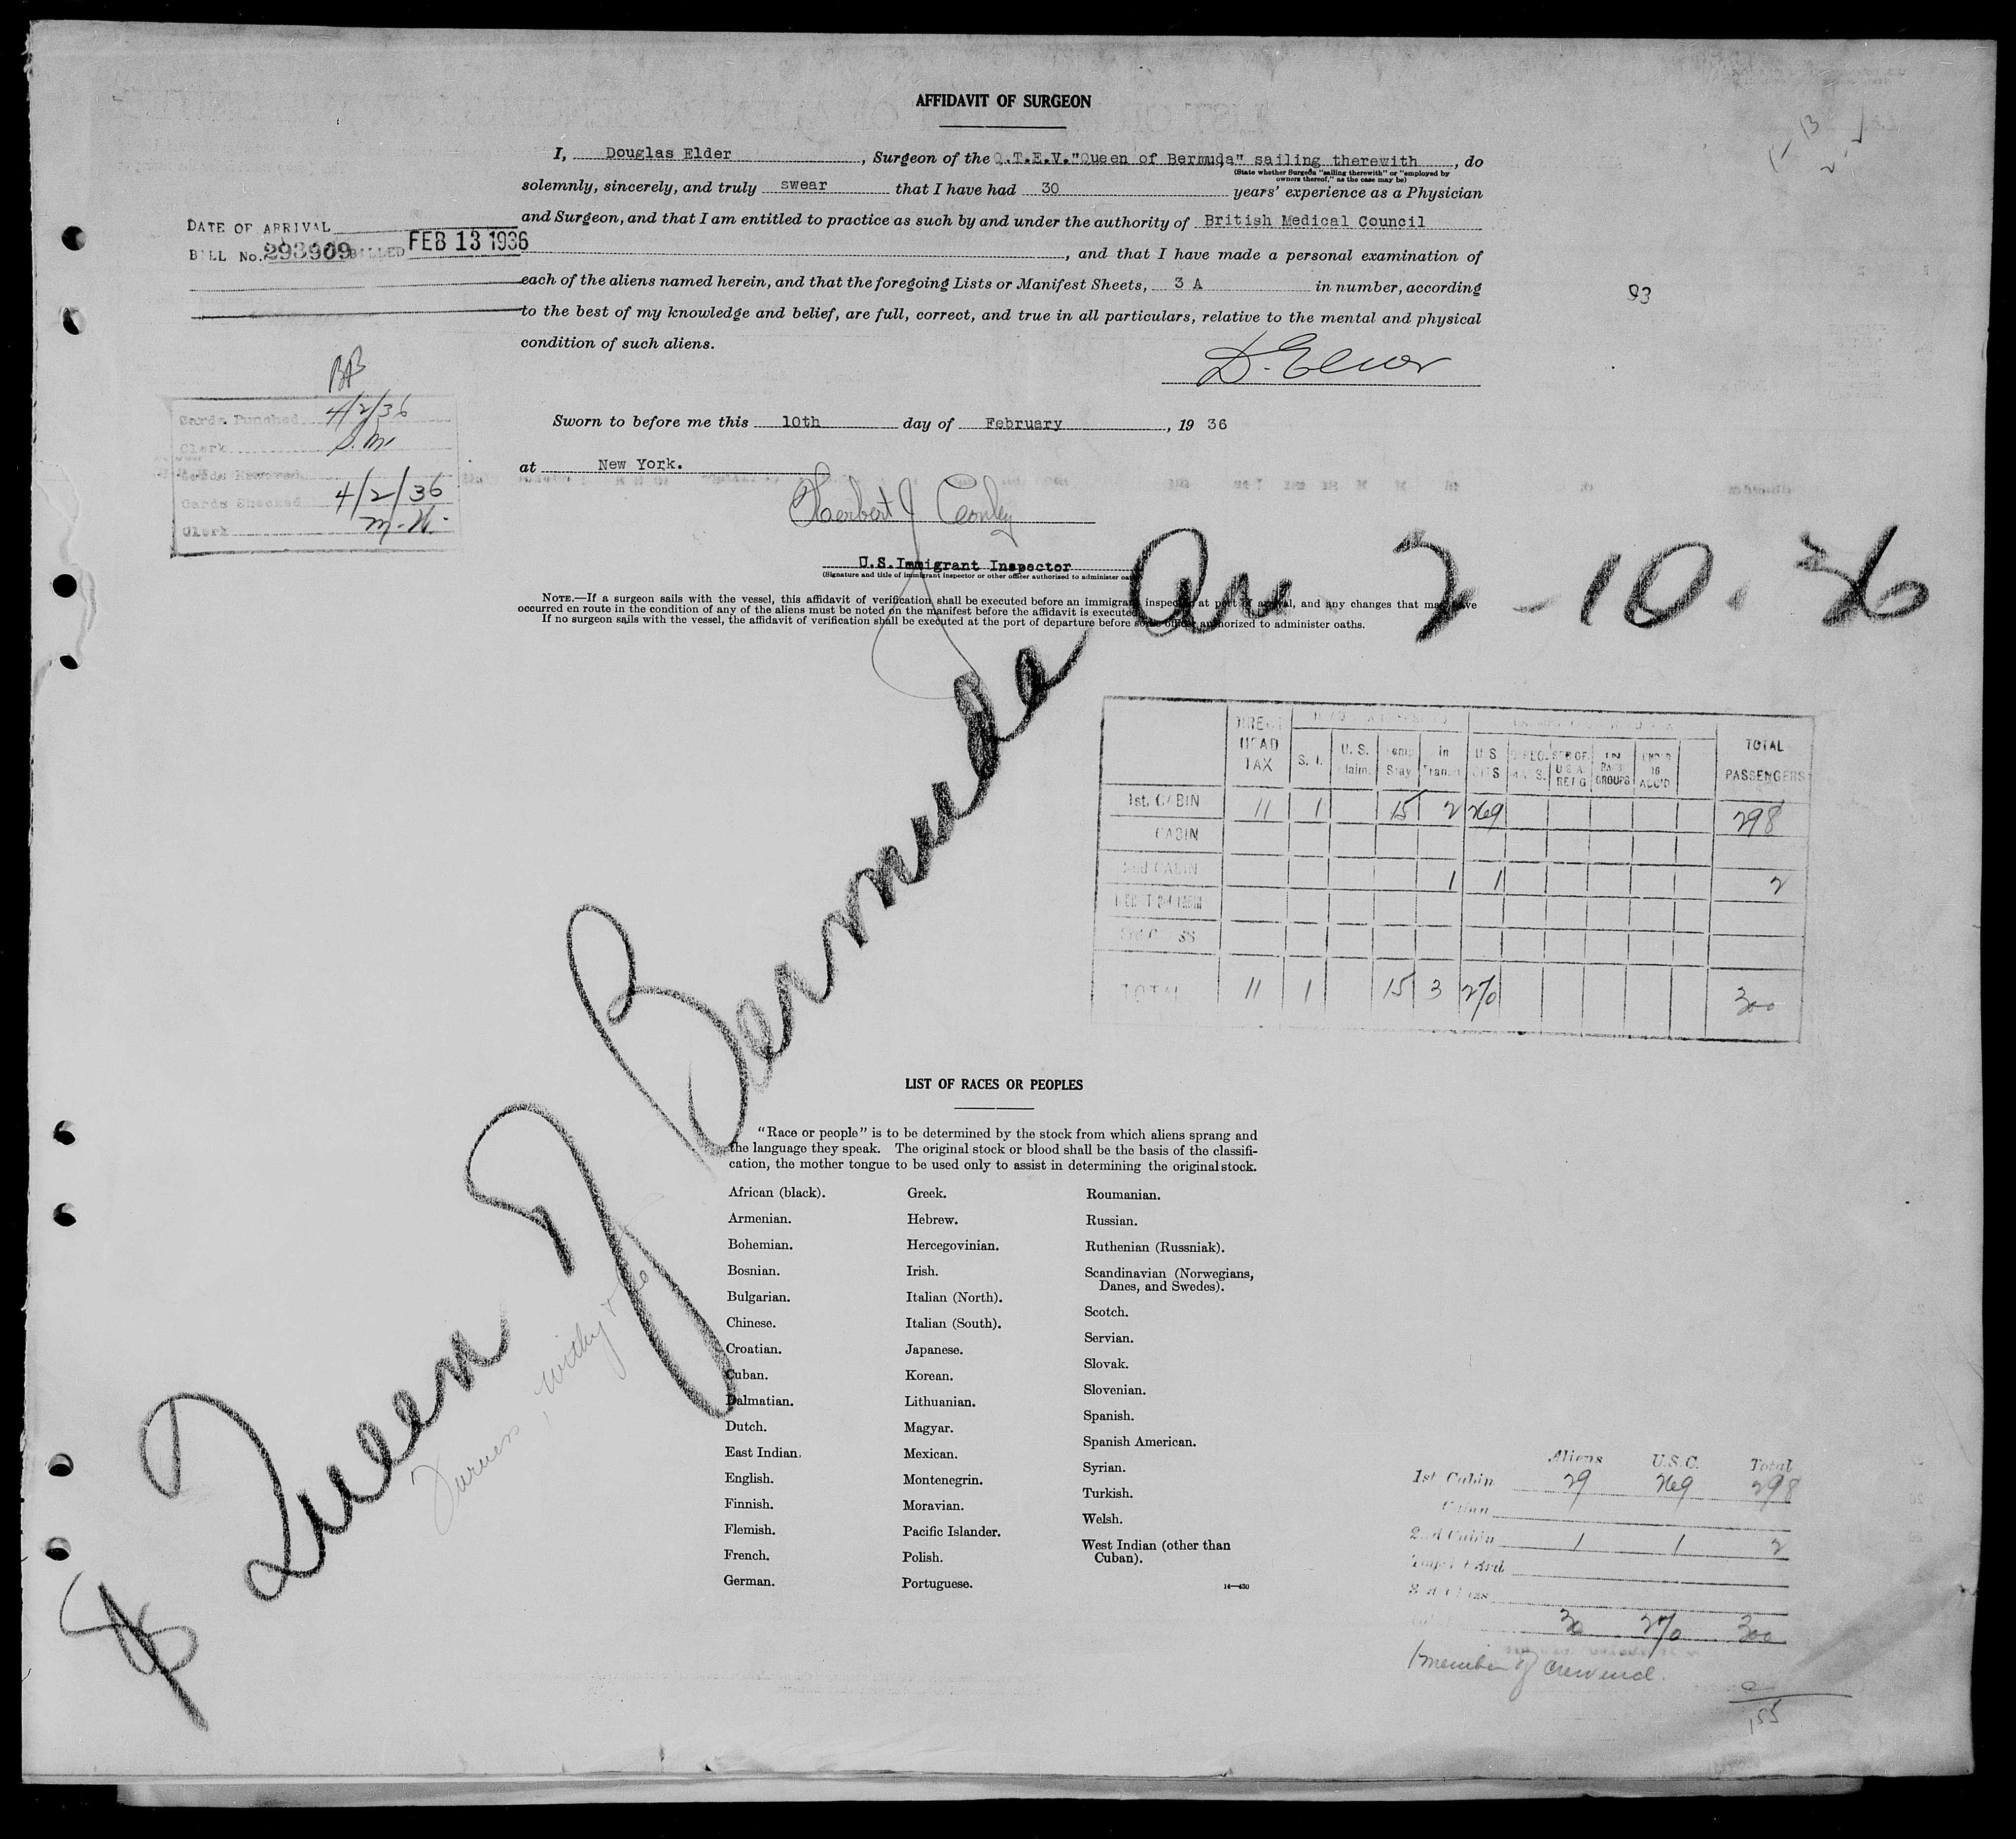 AFFIDAVIT OF SURGEON
I, Douglas Elder, Surgeon of the Q.T.E.V. "Queen of Bermuda" sailing therewith, do
(State whether Surgeon "sailing therewith" or "employed by
owners thereof," as the case may be)
solemnly, sincerely, and truly swear that I have had 30 years' experience as a Physician
and Surgeon, and that I am entitled to practice as such by and under the authority of British Medical Council
, and that I have made a personal examination of
each of the aliens named herein, and that the foregoing Lists or Manifest Sheets, 3 A in number, according
to the best of my knowledge and belief, are full, correct, and true in all particulars, relative to the mental and physical
condition of such aliens.
D. Elder
DATE OF ARRIVAL
BILL No. 293909 BILLED FEB 13 1936
93
Cards Punched 4/2/36
Clerk
Cards Checked 4/2/36
Clerk M.W.
Sworn to before me this 10th day of February, 19 36
at New York.
Herbert J Conley
U.S. Immigrant Inspector
(Signature and title of immigrant inspector or other officer authorized to administer oaths)
NOTE.—If a surgeon sails with the vessel, this affidavit of verification shall be executed before an immigrant inspector at port of arrival, and any changes that may have
occurred en route in the condition of any of the aliens must be noted on the manifest before the affidavit is executed.
If no surgeon sails with the vessel, the affidavit of verification shall be executed at the port of departure before some officer authorized to administer oaths.
SS Queen of Bermuda Arr 2-10-36
Furness, Withy & Co
DIRECT HEAD TAX S. I. U. S. Claim. Temp Stay In Transit U S CITS DIPLOMATS. UNDER 16 ACC'D TOTAL PASSENGERS
1st. CABIN 11 1 15 2 269 298
CABIN
2nd CABIN 1 1 2
TOTAL 11 1 15 3 270 300
LIST OF RACES OR PEOPLES
"Race or people" is to be determined by the stock from which aliens sprang and
the language they speak. The original stock or blood shall be the basis of the classifi-
cation, the mother tongue to be used only to assist in determining the original stock.
African (black).
Armenian.
Bohemian.
Bosnian.
Bulgarian.
Chinese.
Croatian.
Cuban.
Dalmatian.
Dutch.
East Indian.
English.
Finnish.
Flemish.
French.
German.
Greek.
Hebrew.
Hercegovinian.
Irish.
Italian (North).
Italian (South).
Japanese.
Korean.
Lithuanian.
Magyar.
Mexican.
Montenegrin.
Moravian.
Pacific Islander.
Polish.
Portuguese.
Roumanian.
Russian.
Ruthenian (Russniak).
Scandinavian (Norwegians,
Danes, and Swedes).
Scotch.
Servian.
Slovak.
Slovenian.
Spanish.
Spanish American.
Syrian.
Turkish.
Welsh.
West Indian (other than
Cuban).
14—430
Aliens U.S.C. Total
1st Cabin 29 269 298
Cabin
2nd Cabin 1 1 2
3rd Class
30 270 300
1 member of crew incl.
155